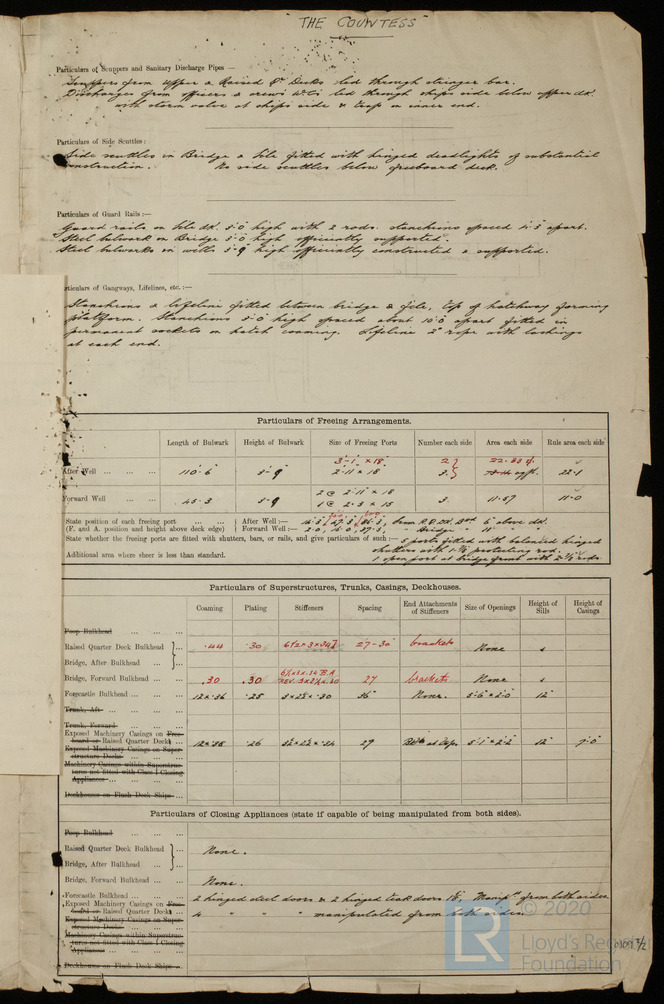 THE COUNTESS
Particulars of Scuppers and Sanitary Discharge Pipes —
Scuppers from Upper & Raised Qr Decks led through stringer bar.
Discharges from officers & crews W.C's led through ships side below upper dk.
with storm valve at ships side & trap on inner end.
Particulars of Side Scuttles :
Side scuttles in Bridge & Fcle fitted with hinged deadlights of substantial
construction. No side scuttles below freeboard deck.
Particulars of Guard Rails :—
Guard rails on Fcle dk. 3'.0 high with 2 rods. stanchions spaced 4'.3 apart.
Steel bulwark on Bridge 3'.0 high efficiently supported.
Steel bulwarks in wells 3'.9 high efficiently constructed & supported.
rticulars of Gangways, Lifelines, etc. :—
Stanchions & lifeline fitted between bridge & fcle, top of hatchway forming
platform. Stanchions 3'.0 high spaced about 10'.0 apart fitted in
permanent sockets on hatch coaming. Lifeline 2" rope with lashings
at each end.
Particulars of Freeing Arrangements.
Length of Bulwark Height of Bulwark Size of Freeing Ports Number each side Area each side Rule area each side
3'-1" × 18" 2
After Well ... 110'.6 3'-9 2'.11 × 18 3. 22.1
2 @ 2'.11 × 18
Forward Well ... 45.3 3-9 1 @ 2.3 × 15 3. 11.57 11.0
State position of each freeing port ... After Well :—
(F. and A. position and height above deck edge) Forward Well :—
State whether the freeing ports are fitted with shutters, bars, or rails, and give particulars of such :— 5 ports fitted with balanced hinged
shutters with 1 1/8 protecting rod.
Additional area where sheer is less than standard. 1 open port at bridge front with 2 rods
Particulars of Superstructures, Trunks, Casings, Deckhouses.
Coaming Plating Stiffeners Spacing End Attachments of Stiffeners Size of Openings Height of Sills Height of Casings
Poop Bulkhead ... ... ...
Raised Quarter Deck Bulkhead ... .44 .30 27-30 brackets None
Bridge, After Bulkhead ... ...
Bridge, Forward Bulkhead ... ... .30 .30 27 brackets None
Forecastle Bulkhead ... ... 12 × .36 .28 3 × 2½ × .30 36" None. 5'.6 × 2'.0 12"
Trunk, Aft ... ... ...
Trunk, Forward ... ... ...
Exposed Machinery Casings on Free-
board or Raised Quarter Deck ... 12 × .38 .26 29 5'.1 × 2'.2 12" 7'.0
Exposed Machinery Casings on Super-
structure Decks ... ...
Machinery Casings within Superstruc-
tures not fitted with Class I Closing
Appliances ... ... ...
Deckhouses on Flush Deck Ships ...
Particulars of Closing Appliances (state if capable of being manipulated from both sides).
Poop Bulkhead ... ... ...
Raised Quarter Deck Bulkhead ... None.
Bridge, After Bulkhead ... ...
Bridge, Forward Bulkhead ... ... None.
Forecastle Bulkhead ... ... 2 hinged steel doors & 2 hinged teak doors Manipd from both sides.
Exposed Machinery Casings on Free-
board or Raised Quarter Deck ... 4 " " " manipulated from both sides.
Exposed Machinery Casings on Super-
structure Decks ... ...
Machinery Casings within Superstruc-
tures not fitted with Class I Closing
Appliances ... ... ...
Deckhouses on Flush Deck Ships ...
© 2020
LR
Lloyd's Register
Foundation